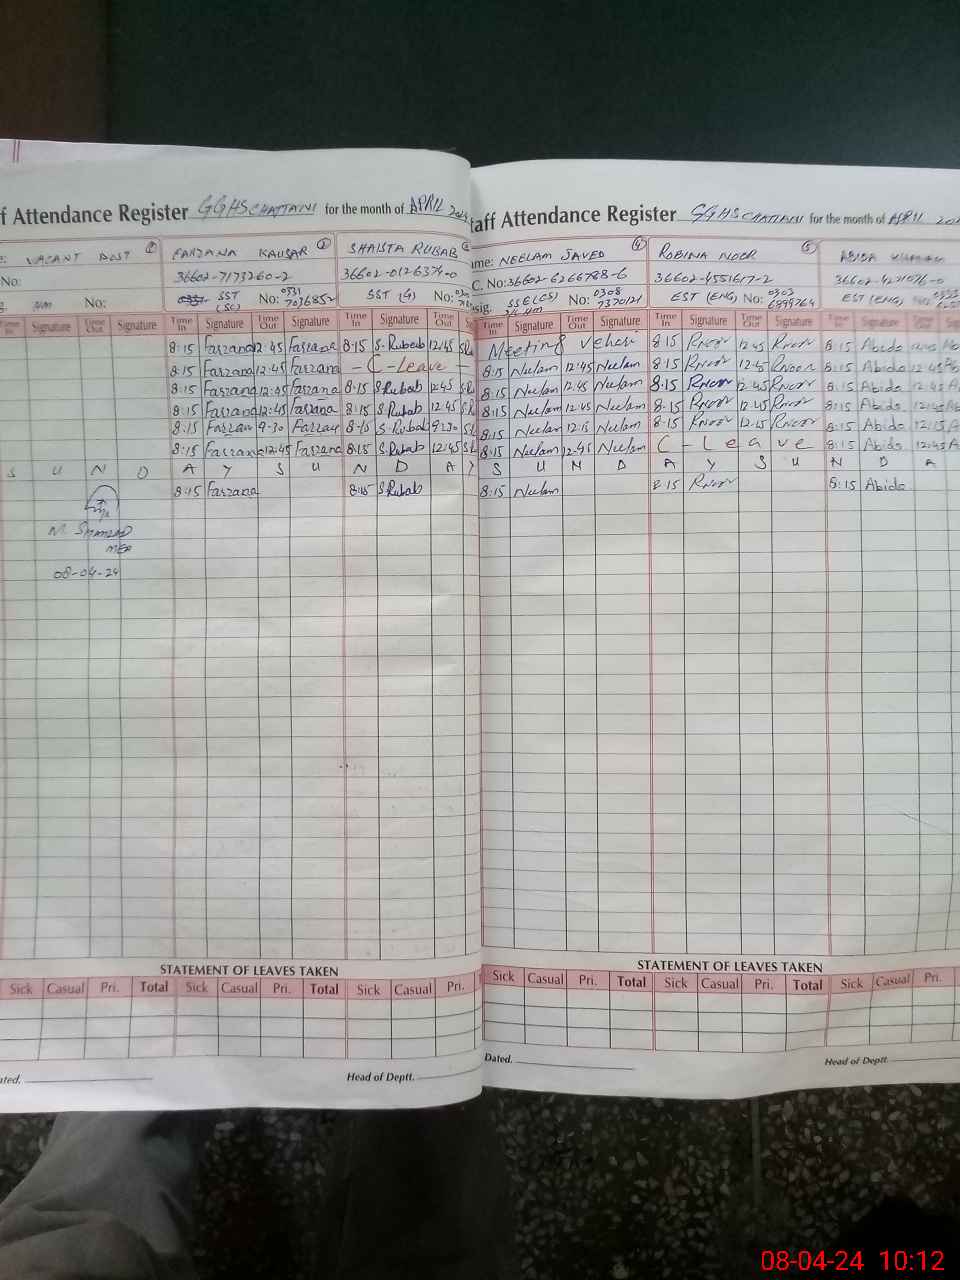 f Attendance Register GGHS CHATTANI for the month of APRIL
VACANT POST FARZANA KAUSAR SHAISTA RUBAB
No: 36602-7173260-2 36602-0126374-0
No: SST (SC) No: 0331 7036852 SST (G) No:
Time In Signature Time Out Signature Time In Signature Time Out Signature Time In Signature Time Out
8:15 Farzana 12:45 Farzana 8:15 S.Rubab 12:45
8:15 Farzana 12:45 Farzana - C-Leave -
8:15 Farzana 12:45 Farzana 8:15 S.Rubab 12:45
8:15 Farzana 12:45 Farzana 8:15 S.Rubab 12:45
8:15 Farzana 9-30 Farzana 8-15 S.Rubab 9:30
8:15 Farzana 12:45 Farzana 8:15 S.Rubab 12:45
S U N D A Y S U N D A Y
8:15 Farzana 8:15 S.Rubab
MEA
08-04-24
STATEMENT OF LEAVES TAKEN
Sick Casual Pri. Total Sick Casual Pri. Total Sick Casual Pri.
ated. Head of Deptt.
taff Attendance Register GGHS CHATTANI for the month of APRIL
ame: NEELAM JAVED ROBINA NOOR ABIDA
C. No: 36602-6266788-6 36602-4551617-2
esig. SSE(CS) 0308 9370121 EST (ENG) No: 0303 6999764 EST (ENG) No:
Time In Signature Time Out Signature Time In Signature Time Out Signature Time In Signature Time Out Signature
Meeting vehari 8:15 RNoor 12:45 RNoor 8:15 Abida
8:15 Neelam 12:45 Neelam 8:15 RNoor 12:45 RNoor 8:15 Abida 12:45
8:15 Neelam 12:45 Neelam 8:15 RNoor 12:45 RNoor 8:15 Abida 12:45
8:15 Neelam 12:45 Neelam 8:15 RNoor 12:45 RNoor 8:15 Abida 12:45
8:15 Neelam 12:15 Neelam 8-15 RNoor 12:15 RNoor 8:15 Abida 12:15
8:15 Neelam 12:45 Neelam C - Leave 8:15 Abida 12:45
S U N D A Y S U N D A
8:15 Neelam 8:15 RNoor 8:15 Abida
STATEMENT OF LEAVES TAKEN
Sick Casual Pri. Total Sick Casual Pri. Total Sick Casual Pri.
Dated. Head of Deptt.
08-04-24 10:12